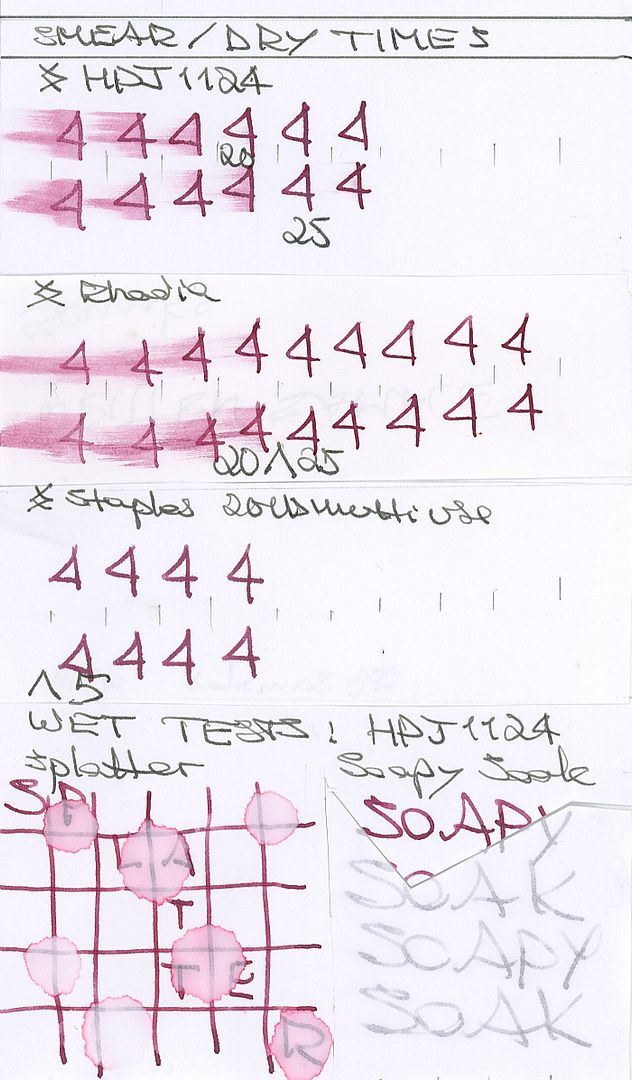 SMEAR / DRY TIMES
HPJ1124
4 4 4 4 4 4
20
4 4 4 4 4 4
25
Rhodia
4 4 4 4 4 4 4 4 4
4 4 4 4 4 4 4 4 4
20 125
Staples 20lb multi use
4 4 4 4
4 4 4 4
15
WET TESTS: HPJ1124
Splatter
Soapy Soak
SP
LA
T
TE
R
SOAPY
SOAK
SOAPY
SOAK